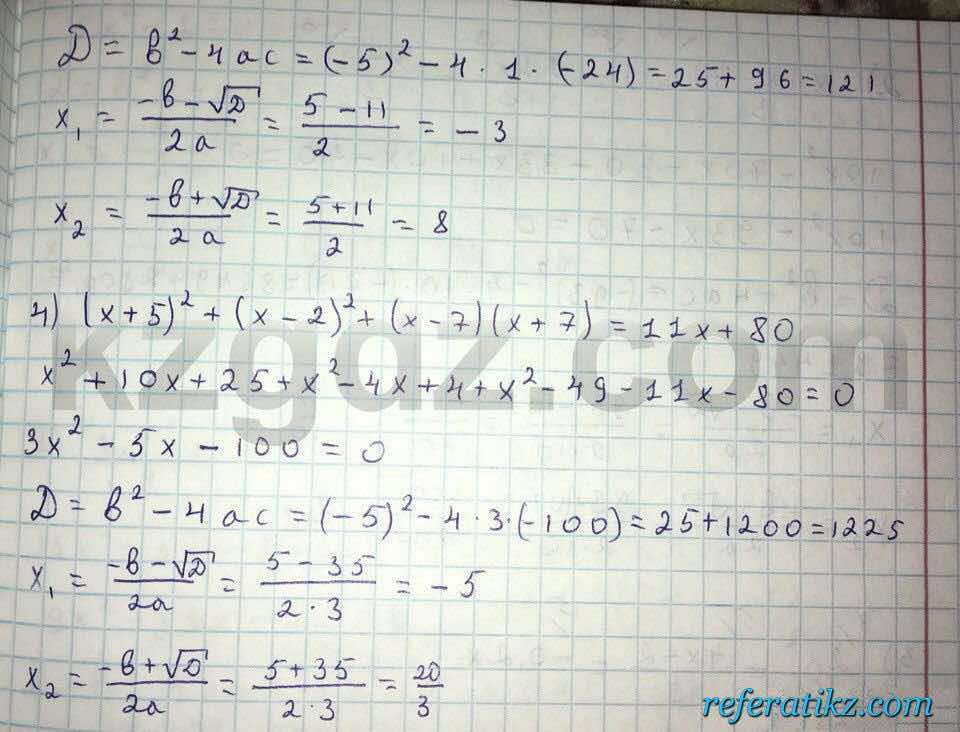 Д = в² - 4ac = (-5)² - 4 · 1 · (-24) = 25 + 96 = 121
x₁ = (-в - √Д)/(2a) = (5 - 11)/2 = -3
x₂ = (-в + √Д)/(2a) = (5 + 11)/2 = 8
4) (x + 5)² + (x - 2)² + (x - 7)(x + 7) = 11x + 80
x² + 10x + 25 + x² - 4x + 4 + x² - 49 - 11x - 80 = 0
kzgdz.com
3x² - 5x - 100 = 0
Д = в² - 4ac = (-5)² - 4 · 3 · (-100) = 25 + 1200 = 1225
x₁ = (-в - √Д)/(2a) = (5 - 35)/(2 · 3) = -5
x₂ = (-в + √Д)/(2a) = (5 + 35)/(2 · 3) = 20/3
referatikz.com